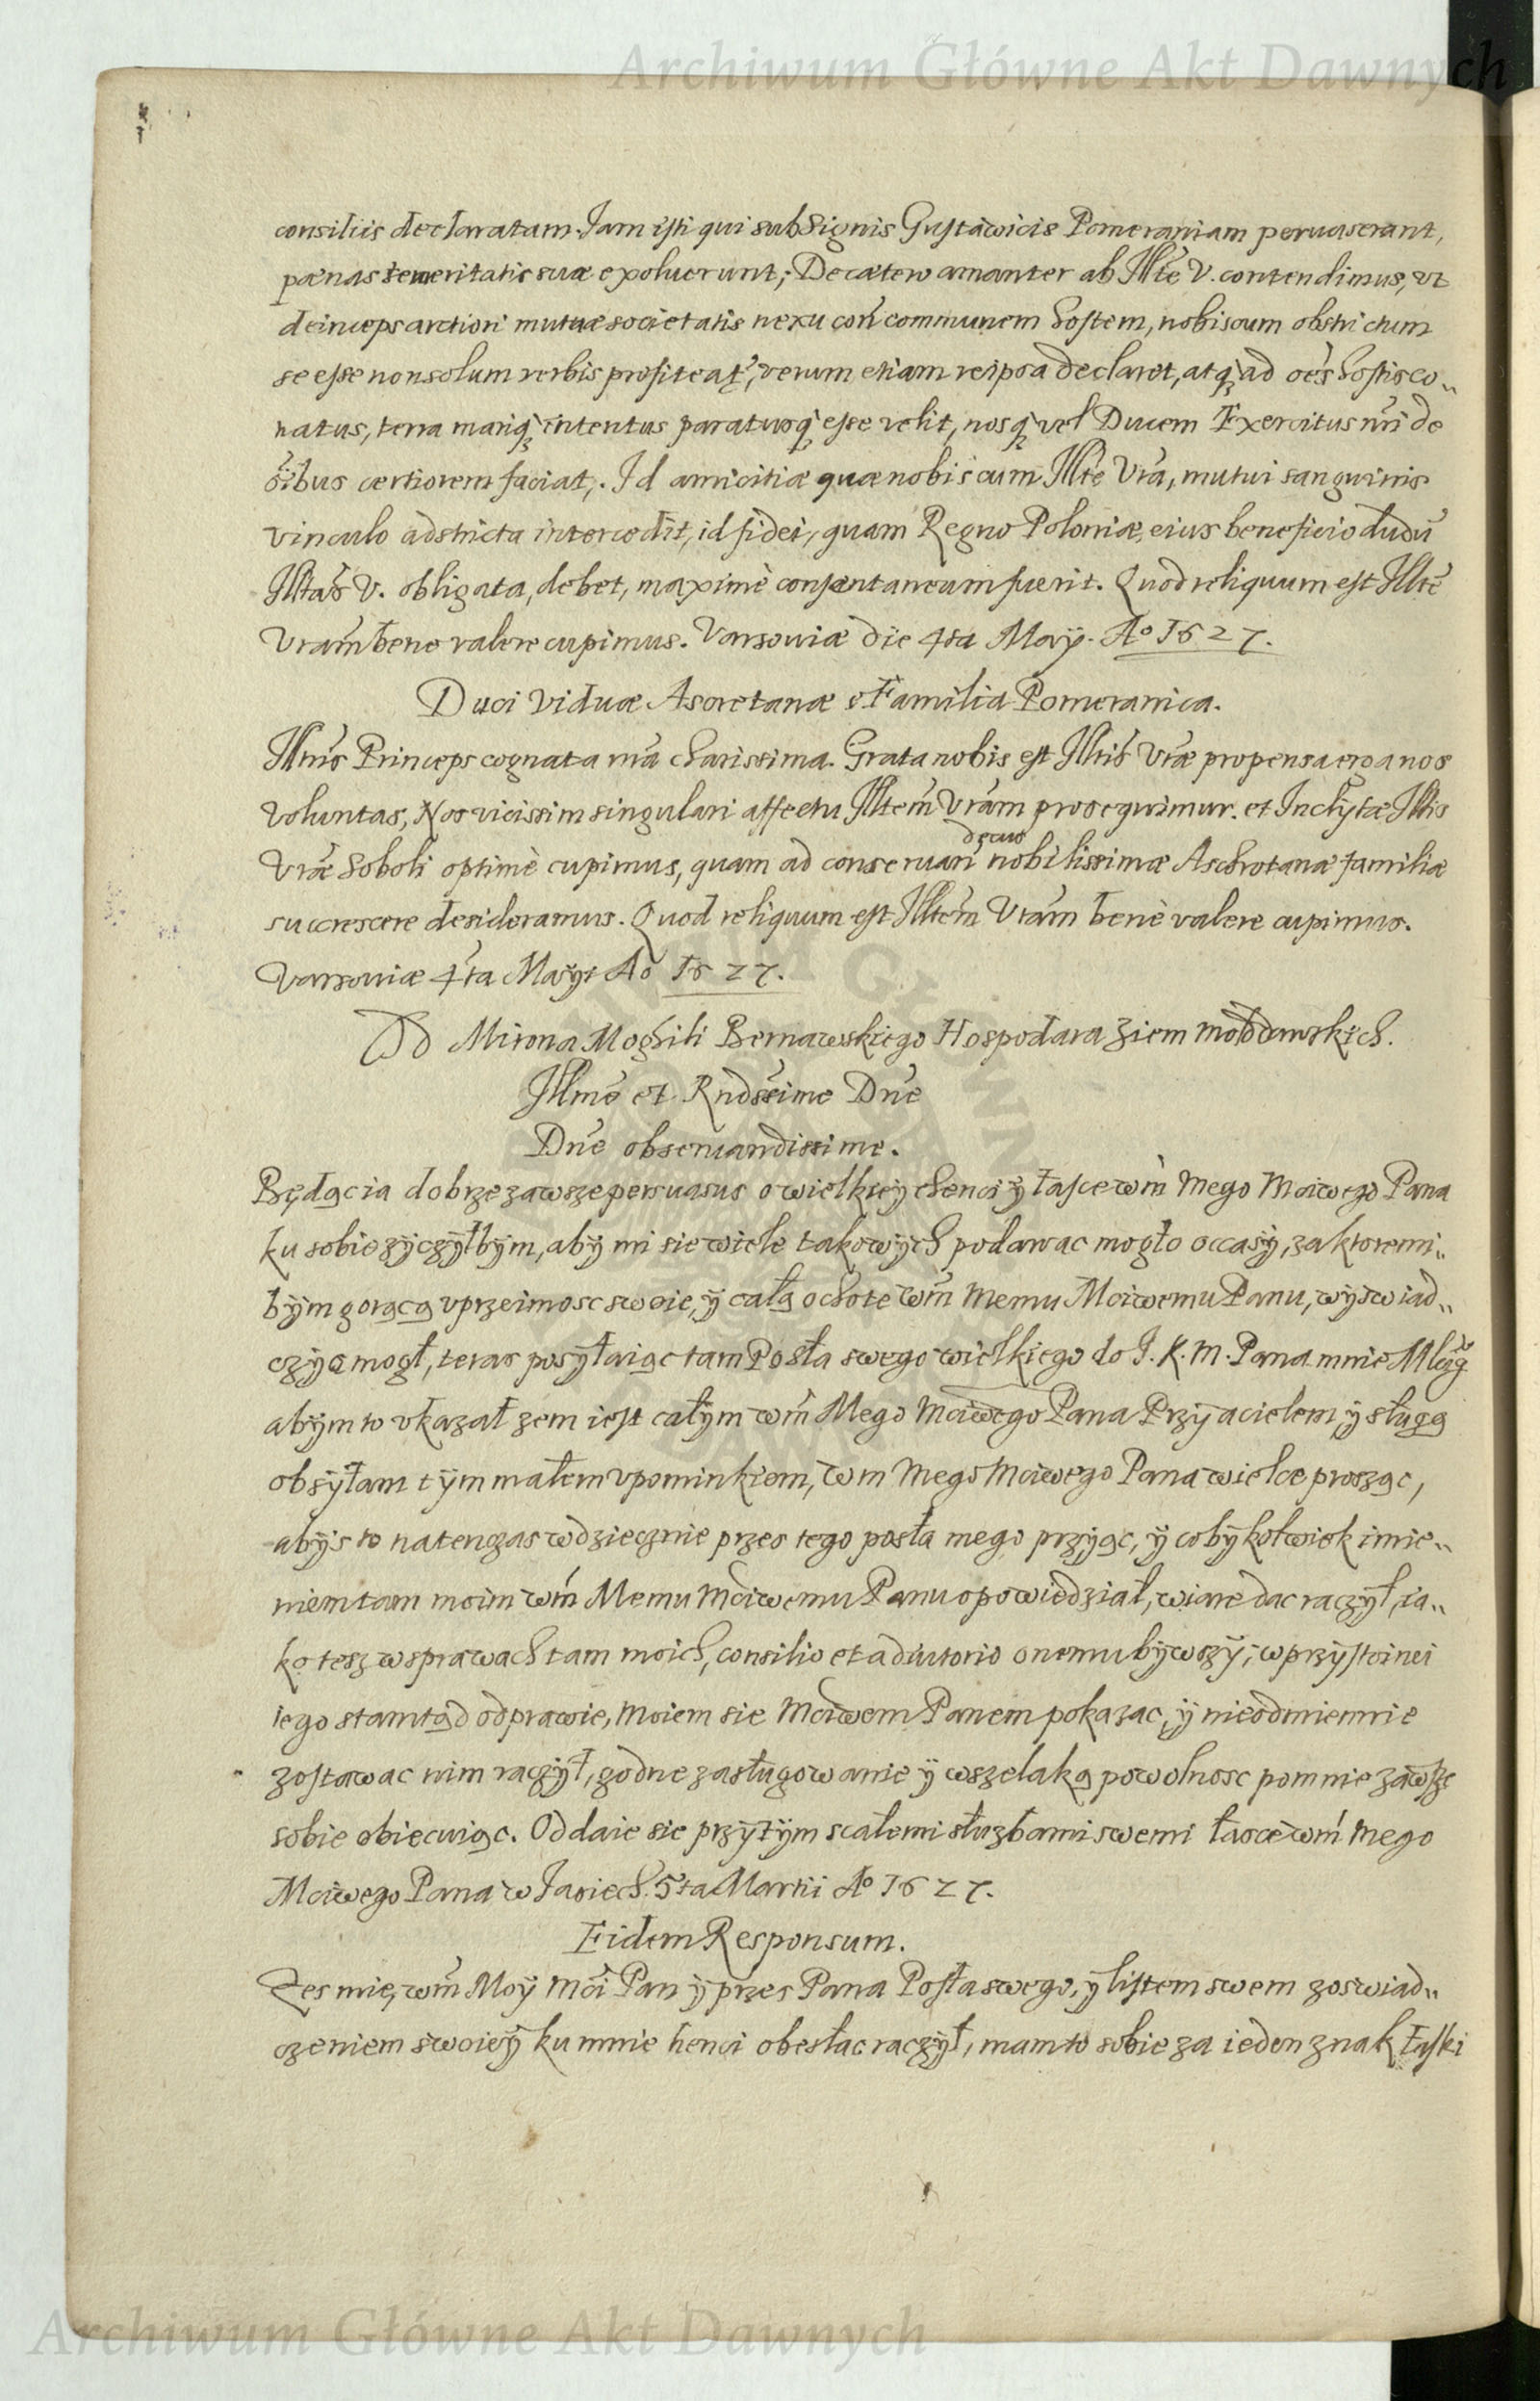 Archiwum Główne Akt Dawnych
consiliis declaratam. Jam isti qui sub Signis Gustavicis Pomeraniam pervaserant,
pænas temeritatis suæ exoluerunt; De cætero amanter ab Illte V. contendimus, ut
deinceps arctiori mutuæ societatis nexu con communem hostem, nobiscum obstrictum
se esse non solum verbis profiteat, verum etiam reipsa declaret, atq ad oes hostis co„
natus, terra mariq intentus paratusq esse velit, nosq vel Ducem Exercitus nri de
oibus certiorem faciat,. Id amicitiæ quæ nobis cum Illte Vra, mutui sanguinis
vinculo adstricta intercedit, id fidei, quam Regno Poloniæ, eius beneficio dudu
Illtas V. obligata, debet, maximè consentaneum fuerit. Quod reliquum est Illte
Vram bene valere cupimus. Varsoviæ die 4ta Maÿ. Ao 1627.
Duci Viduæ Ascretanæ e Familia Pomeranica.
Illris Princeps cognata nra charissima. Grata nobis est Illtis Vræ propensa erga nos
voluntas, Nos vicissim singulari affectu Illtem Vram prosequimur. et Inclytæ Illtis
Vræ Soboli optimè cupimus, quam ad conservari decus nobilissimæ Aschrotanæ familiæ
succrescere desideramus. Quod reliquum est Illtem Vram benè valere cupimus.
Varsoviæ 4ta Maÿi Ao 1627.
Od Mirona Moghili Bernawskiego Hospodara Ziem Mołdawskich.
Illme et Rndssime Dne
Dne observandissime.
Będąc ia dobrze zawsze persuasus o wielkieÿ chenci ÿ łasce wm Mego Mciwego Pana
ku sobie zÿczÿłbÿm, abÿ mi sie wiele takowÿch podawac mogło occasÿ, za ktoremi„
bÿm gorącą uprzeimosc swoie, ÿ całą ochote wm Memu Mciwemu Panu, wÿswiad„
czÿc mogł, teras posÿłaiąc tam Posła swego wielkiego do J. K. M. Pana mnie Mlgo
abÿm to ukazał zem iest całÿm wm Mego Mciwego Pana Przÿacielem, ÿ sługą
obsÿłam tÿm małem upominkiem, wm Mego Mciwego Pana wielce prosząc,
abÿs to natenczas wdziecznie przes tego posła mego przÿąc, ÿ cobÿkolwiek imie„
niem tam moim wm Memu Mciwemu Panu opowiedział, wiare dac raczÿł, ia„
ko tesz w sprawach tam moich, consilio et adiutorio onemu bÿwszÿ, w przÿstoinei
iego stamtąd odprawie, Moiem sie Mciwem Panem pokazac, ÿ nieodmiennie
zostawac nim raczÿł, godne zasługowanie ÿ wszelaką powolnosc po mnie zawsze
sobie obiecuiąc. Oddaie sie przÿ tÿm s całemi słuzbami swemi łasce wm Mego
Mciwego Pana w Jasiech. 5ta Martii Ao 1627.
Eidem Responsum.
Zes mię, wm Moÿ Mci Pan ÿ przes Pana Posła swego, ÿ listem swem z oswiad„
czeniem swoieÿ ku mnie henci obesłac raczÿł, mam to sobie za ieden znak łaski
Archiwum Główne Akt Dawnych